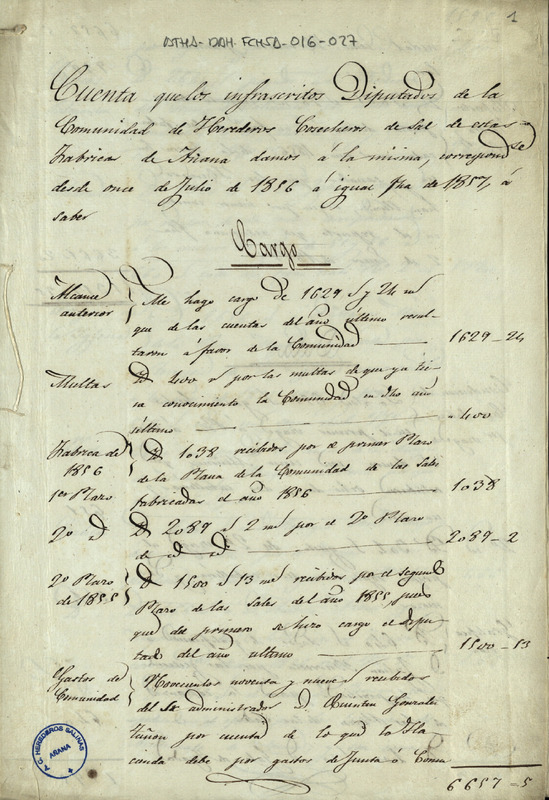 1
ATHA-DAH-FCHSA-016-027
Cuenta que los infrascritos Diputados de la
Comunidad de Herederos Cosecheros de Sal de estas
Fabricas de Añana damos á la misma, correspondte
desde once de Julio de 1856 á igual fha de 1857, á
saber
Cargo
Alcance anterior
Me hago cargo de 1629 rs y 24 ms
que de las cuentas del año último resul-
taron á favor de la Comunidad 1629-24
Multas
Id 400 rs por las multas de que ya tie-
ne conocimiento la Comunidad en dho año
último 400
Fabrica de 1856 1er Plazo
Id 1038 recibidos por el primer Plazo
de la Plana de la Comunidad de las Sales
fabricadas el año 1856 1038
2º id
Id 2089 rs 2 ms por el 2º Plazo
de id id 2089-2
2º Plazo de 1855
Id 1500 rs 13 ms recibidos por el segundo
Plazo de las Sales del año 1855, pues
que del primero se hizo cargo el Dipu-
tado del año ultimo 1500-13
Gastos de Comunidad
Novecientos noventa y nueve rs recibidos
del Sr administrador D. Quintin Gonzalez
Tuñon por cuenta de lo que la Ha-
cienda debe por gastos de Junta ó Comu
6657=5
A.C. HEREDEROS SALINAS
AÑANA